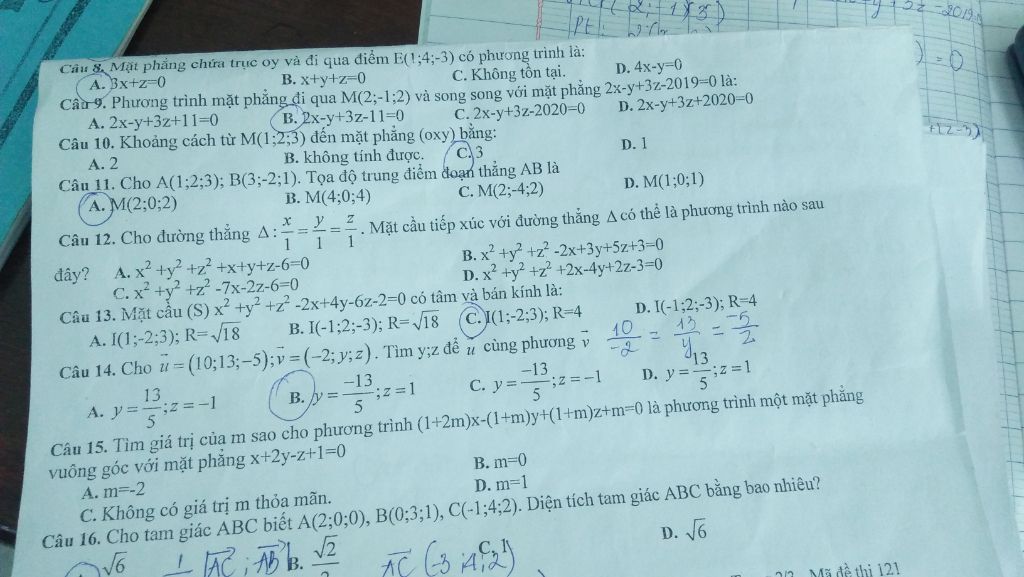 Câu 8. Mặt phẳng chứa trục oy và đi qua điểm E(1;4;-3) có phương trình là:
A. 3x+z=0 B. x+y+z=0 C. Không tồn tại. D. 4x-y=0
Câu 9. Phương trình mặt phẳng đi qua M(2;-1;2) và song song với mặt phẳng 2x-y+3z-2019=0 là:
A. 2x-y+3z+11=0 B. 2x-y+3z-11=0 C. 2x-y+3z-2020=0 D. 2x-y+3z+2020=0
Câu 10. Khoảng cách từ M(1;2;3) đến mặt phẳng (oxy) bằng:
A. 2 B. không tính được. C. 3 D. 1
Câu 11. Cho A(1;2;3); B(3;-2;1). Tọa độ trung điểm đoạn thẳng AB là
A. M(2;0;2) B. M(4;0;4) C. M(2;-4;2) D. M(1;0;1)
Câu 12. Cho đường thẳng Δ: x/1 = y/1 = z/1. Mặt cầu tiếp xúc với đường thẳng Δ có thể là phương trình nào sau
đây? A. x²+y²+z²+x+y+z-6=0 B. x²+y²+z²-2x+3y+5z+3=0
C. x²+y²+z²-7x-2z-6=0 D. x²+y²+z²+2x-4y+2z-3=0
Câu 13. Mặt cầu (S) x²+y²+z²-2x+4y-6z-2=0 có tâm và bán kính là:
A. I(1;-2;3); R=√18 B. I(-1;2;-3); R=√18 C. I(1;-2;3); R=4 D. I(-1;2;-3); R=4
Câu 14. Cho u⃗=(10;13;-5); v⃗=(-2;y;z). Tìm y;z để u⃗ cùng phương v⃗ 10/-2 = 13/y = -5/z
A. y=13/5; z=-1 B. y=-13/5; z=1 C. y=-13/5; z=-1 D. y=13/5; z=1
Câu 15. Tìm giá trị của m sao cho phương trình (1+2m)x-(1+m)y+(1+m)z+m=0 là phương trình một mặt phẳng
vuông góc với mặt phẳng x+2y-z+1=0
A. m=-2 B. m=0
C. Không có giá trị m thỏa mãn. D. m=1
Câu 16. Cho tam giác ABC biết A(2;0;0), B(0;3;1), C(-1;4;2). Diện tích tam giác ABC bằng bao nhiêu?
√6 B. √2 C. 1 D. √6
Mã đề thi 121